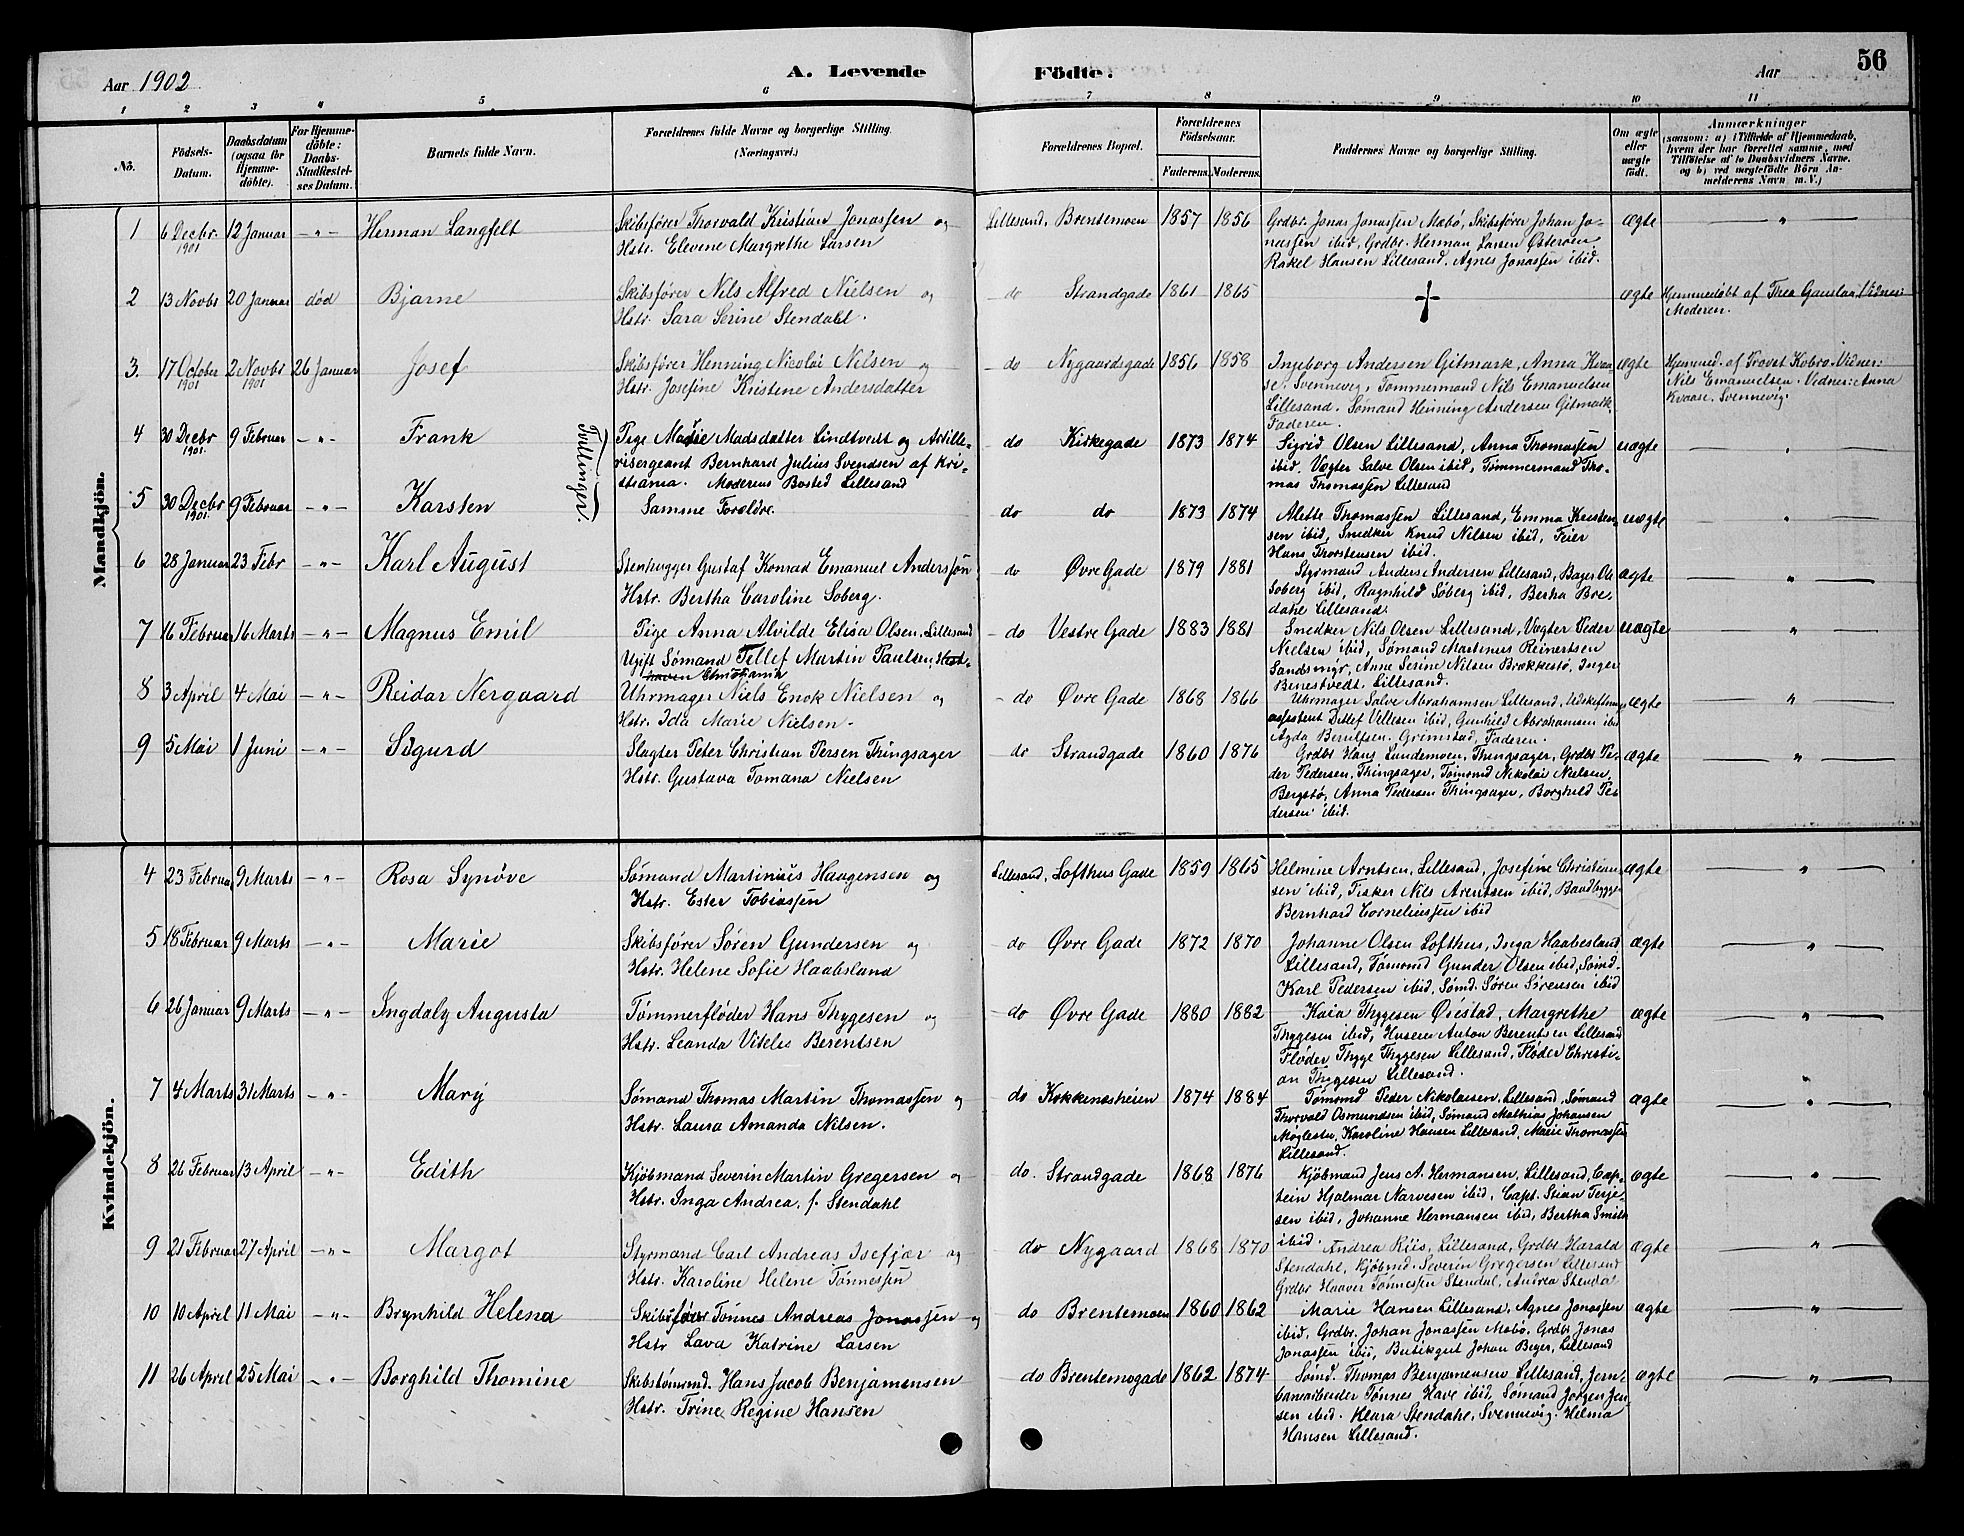 56
Aar 1902
A. Levende Födte.
Aar
1 2 3 4 5 6 7 8 9 10 11
No.
Födsels-Datum.
Daabsdatum (ogsaa for Hjemme-döbte).
For Hjemme-döbte: Daabs-Stadfæstel-ses Datum.
Barnets fulde Navn.
Forældrenes fulde Navne og borgerlige Stilling. (Næringsvei.)
Forældrenes Bopæl.
Forældrenes Födselsaar. Faderens. Moderens.
Faddernes Navne og borgerlige Stilling.
Om ægte eller uægte født.
Anmærkninger (saasom: a) i Tilfælde af Hjemmedaab, hvem der har forrettet samme, med Tilföielse af to Daabsvidners Navne. og b) ved uægtefödte Börn An-melderens Navn m. V.)
Mandkjön.
1 6 Decbr. 1901 12 Januar —"— Herman Langfelt
Skibsfører Thorvald Kristian Jonassen og
Hstr. Elevene Margrethe Larsen
Lillesand, Brentemoen 1857 1856
Grdbr. Jonas Jonassen Møbø, Skibsfører Johan Jo-
nassen ibid, Grdbr. Herman Larsen Østerøen,
Rakel Hansen Lillesand. Agnes Jonassen ibid.
ægte — " —
2 13 Novbr 20 Januar død Bjarne
Skibsfører Nils Alfred Nielsen og
Hstr. Sara Serine Stendahl.
do Strandgade 1861 1865
+
ægte Hjemmedøbt af Thea Gauslaa, Vidnes:
Moderen.
3. 17 October 1901 2 Novbr 1901 26 Januar Josef
Skibsfører Henning Nicolai Nilsen og
Hstr. Josefine Kristene Andersdatter
do Nygaardsgade 1856 1858
Ingeborg Andersen Gitmark, Anna Kvaa-
se. Svennevig, Tømmermand Nils Emanuelsen
Lillesand. Sømand Henning Andersen Gitmark
Faderen.
ægte Hjemmed. af Provst Kobro. Vidner:
Nils Emanuelsen. Vidner: Anna
Kvaase. Svennevig.
4 30 Decbr 1901. 9 Februar —"— Frank
Tvillinger.
Pige Marie Madsdatter Lindtvedt og Artille-
risergeant Bernhard Julius Svendsen af Kri-
stiania. Moderens Bosted Lillesand
do Kirkegade 1873 1874
Sigrid Olsen Lillesand, Anna Thomassen
ibid. Vægter Salve Olsen ibid, Tømmermand Tho-
mas Thomassen Lillesand
uægte
5 30 Decbr 1901. 9 Februar —"— Karsten
Samme Forældre.
do do 1873 1874
Alette Thomassen Lillesand, Emma Kristen-
sen ibid, Snedker Knud Nilsen ibid, Feier
Hans Thorstensen ibid.
uægte
6 28 Januar 23 Febr —"— Karl August
Stenhugger Gustaf Konrad Emanuel Andersson
Hstr. Bertha Caroline Soberg.
do Øvre Gade 1879 1881
Styrmand Anders Andersen Lillesand, Bager Ole
Soberg ibid, Ragnhild Søberg ibid, Bertha Bre-
dahl Lillesand.
ægte — " —
7 16 Februar 16 Marts —"— Magnus Emil
Pige Anna Alvilde Elisa Olsen, Lillesand
Ugift Sømand Tellef Martin Paulsen, Hest-
haven Christiania
do Vestre Gade 1883 1881
Snedker Nils Olsen Lillesand, Vægter Peder
Nielsen ibid, Sømand Martinus Reinertsen
Sandsmyr, Anne Serine Nilsen Brækkestø, Inger
Benestvedt, Lillesand.
uægte — " —
8 3 April 4 Mai —"— Reidar Nergaard
Uhrmager Niels Enok Nielsen og
Hstr. Ida Marie Nielsen.
do Øvre Gade 1868 1866
Uhrmager Salve Abrahamsen Lillesand, Udskiftnings
assistent Detlef Vellesen ibid, Gunhild Abrahamsen ibid
Agda Berntsen. Grimstad, Faderen.
ægte — " —
9 5 Mai 1 Juni —"— Sigurd
Slagter Peter Christian Persen Thingsager
Hstr. Gustava Tomana Nielsen
do Strandgade 1860 1876
Grdbr Hans Lundemoen, Thingsager, Grdbr Pe-
der Pedersen, Thingsager, Tømmd Nikolai Nielsen,
Bergstø, Anna Pedersen Thingsager, Borghild Pe-
dersen ibid.
ægte — " —
Kvindekjön.
4 23 Februar 9 Marts —"— Rosa Synøve
Sømand Martinius Haagensen og
Hstr. Ester Tobiassen
Lillesand, Lofthus Gade 1859 1865
Helmine Arntsen, Lillesand, Josefine Christian-
sen ibid, Fisker Nils Arentsen ibid, Baadbygger
Bernhard Corneliussen ibid
ægte — " —
5 18 Februar 9 Marts —"— Marie
Skibsfører Søren Gundersen og
Hstr. Helene Sofie Haabsland
do Øvre Gade 1872 1870
Johanne Olsen Lofthus, Inga Haabesland
Lillesand, Tømmd Gunder Olsen ibid, Sømd.
Karl Pedersen ibid, Sømd. Søren Sørensen ibid
ægte — " —
6 26 Januar 9 Marts —"— Ingdaly Augusta
Tømmerfløder Hans Thygesen og
Hstr. Leanda Viteles Berentsen
do Øvre Gade 1880 1882
Kaia Thygesen Øiestad, Margrethe
Thygesen ibid, Huseier Anton Berentsen Lillesand
Fløder Thyge Thygesen Lillesand, Fløder Christi-
an Thygesen Lillesand.
ægte — " —
7 4 Marts 31 Marts —"— Mary
Sømand Thomas Martin Thomassen og
Hstr. Laura Amanda Nilsen.
do Kokkenesheien 1874 1884
Tømmd Peder Nikolaisen, Lillesand, Sømand
Thorvald Osmundsen ibid, Sømand Mathias Johansen
Møglestu, Karoline Hansen Lillesand, Marie Thomassen
Lillesand.
ægte — " —
8 26 Februar 13 April —"— Edith
Kjøbmand Severin Martin Gregersen og
Hstr. Inga Andrea, f. Stendahl
do. Strandgade 1868 1876
Kjøbmand Jens A. Hermansen, Lillesand, Cap-
tein Hjalmar Narvesen ibid, Capt. Stian Terje-
sen ibid, Johanne Hermansen ibid, Bertha Smith
ibid.
ægte — " —
9 21 Februar 27 April —"— Margot
Styrmand Carl Andreas Isefjær og
Hstr. Karoline Helene Tønnessen
do Nygaard 1868 1870
Andrea Riis, Lillesand, Grdbr Harald
Stendahl, Kjøbmd. Severin Gregersen Lillesand
Grdbr Haaver Tønnessen Stendal, Andrea Stendal
ægte — " —
10 10 April 11 Mai —"— Brynhild Helena
Skibsfører Tønnes Andreas Jonassen og
Hstr Lava Katrine Larsen
do Brentemoen 1860 1862
Marie Hansen Lillesand, Agnes Jonassen
ibid, Grdbr. Johan Jonassen Møbø, Grdbr Jonas
Jonassen ibid, Butikgut Johan Beyer, Lillesand
ægte — " —
11 26 April 25 Mai —"— Borghild Thomine
Skibstømrmd. Hans Jacob Benjamensen
Hstr. Trine Regine Hansen
do Brentemogade 1862 1874
Sømd. Thomas Benjamensen Lillesand, Jern-
banearbeider Tønnes Have ibid, Sømand Jørgen Jen-
sen ibid. Klara Stendahl, Svennevig. Helma
Hansen Lillesand.
ægte — " —